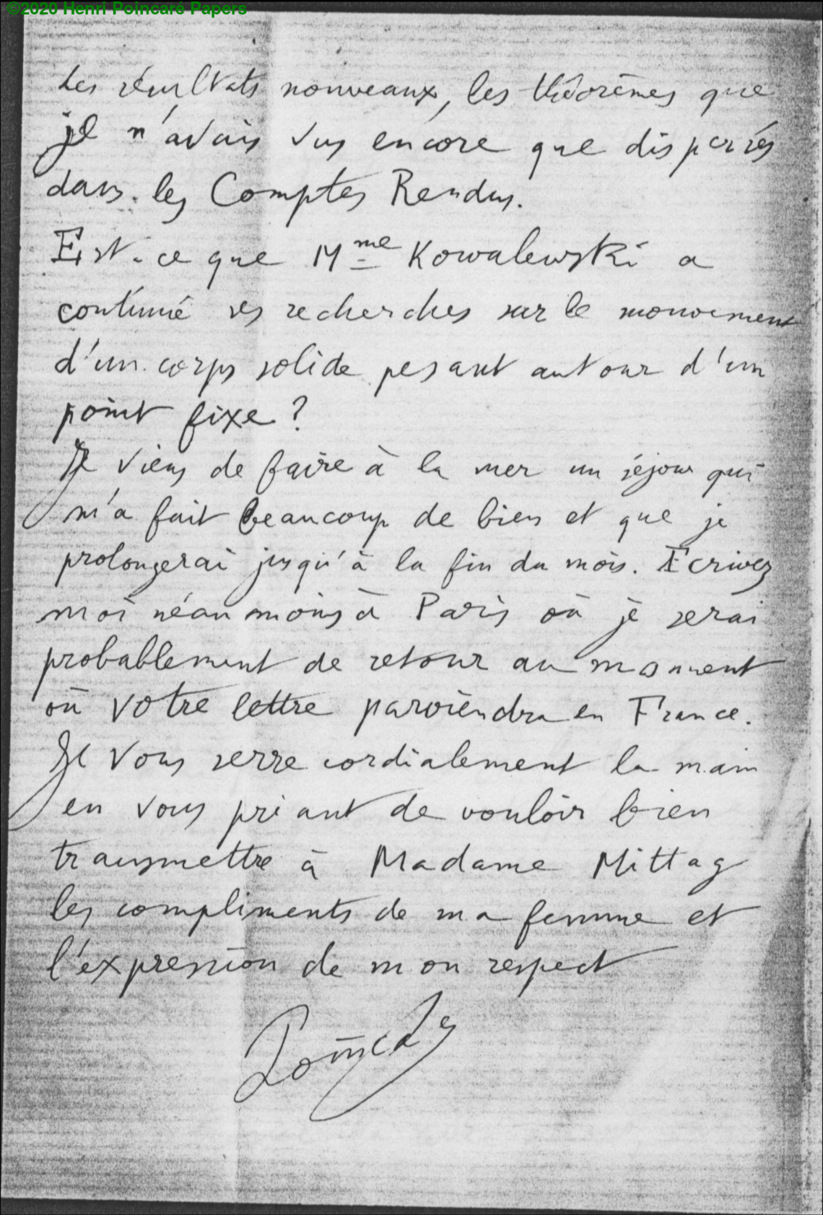 ©2020 Henri Poincaré Papers
les résultats nouveaux, les théorèmes que
je n'avais vus encore que dispersés
dans les Comptes Rendus.
Est-ce que Mme Kowalewski a
continué ses recherches sur le mouvement
d'un corps solide pesant autour d'un
point fixe ?
Je viens de faire à la mer un séjour qui
m'a fait beaucoup de bien et que je
prolongerai jusqu'à la fin du mois. Ecrivez
moi néanmoins à Paris où je serai
probablement de retour au moment
où votre lettre parviendra en France.
Je vous serre cordialement la main
en vous priant de vouloir bien
transmettre à Madame Mittag
les compliments de ma femme et
l'expression de mon respect
Poincaré